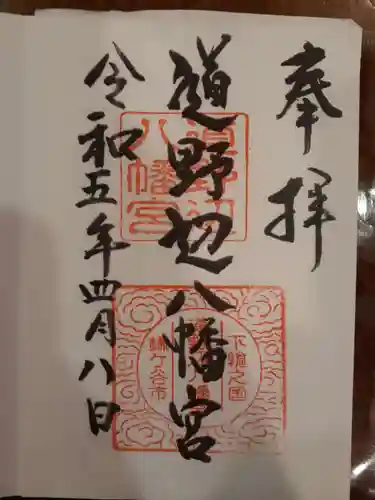 奉拝
道野辺八幡宮
令和五年四月八日
道野辺
八幡宮
下総之国
鎌ケ谷市